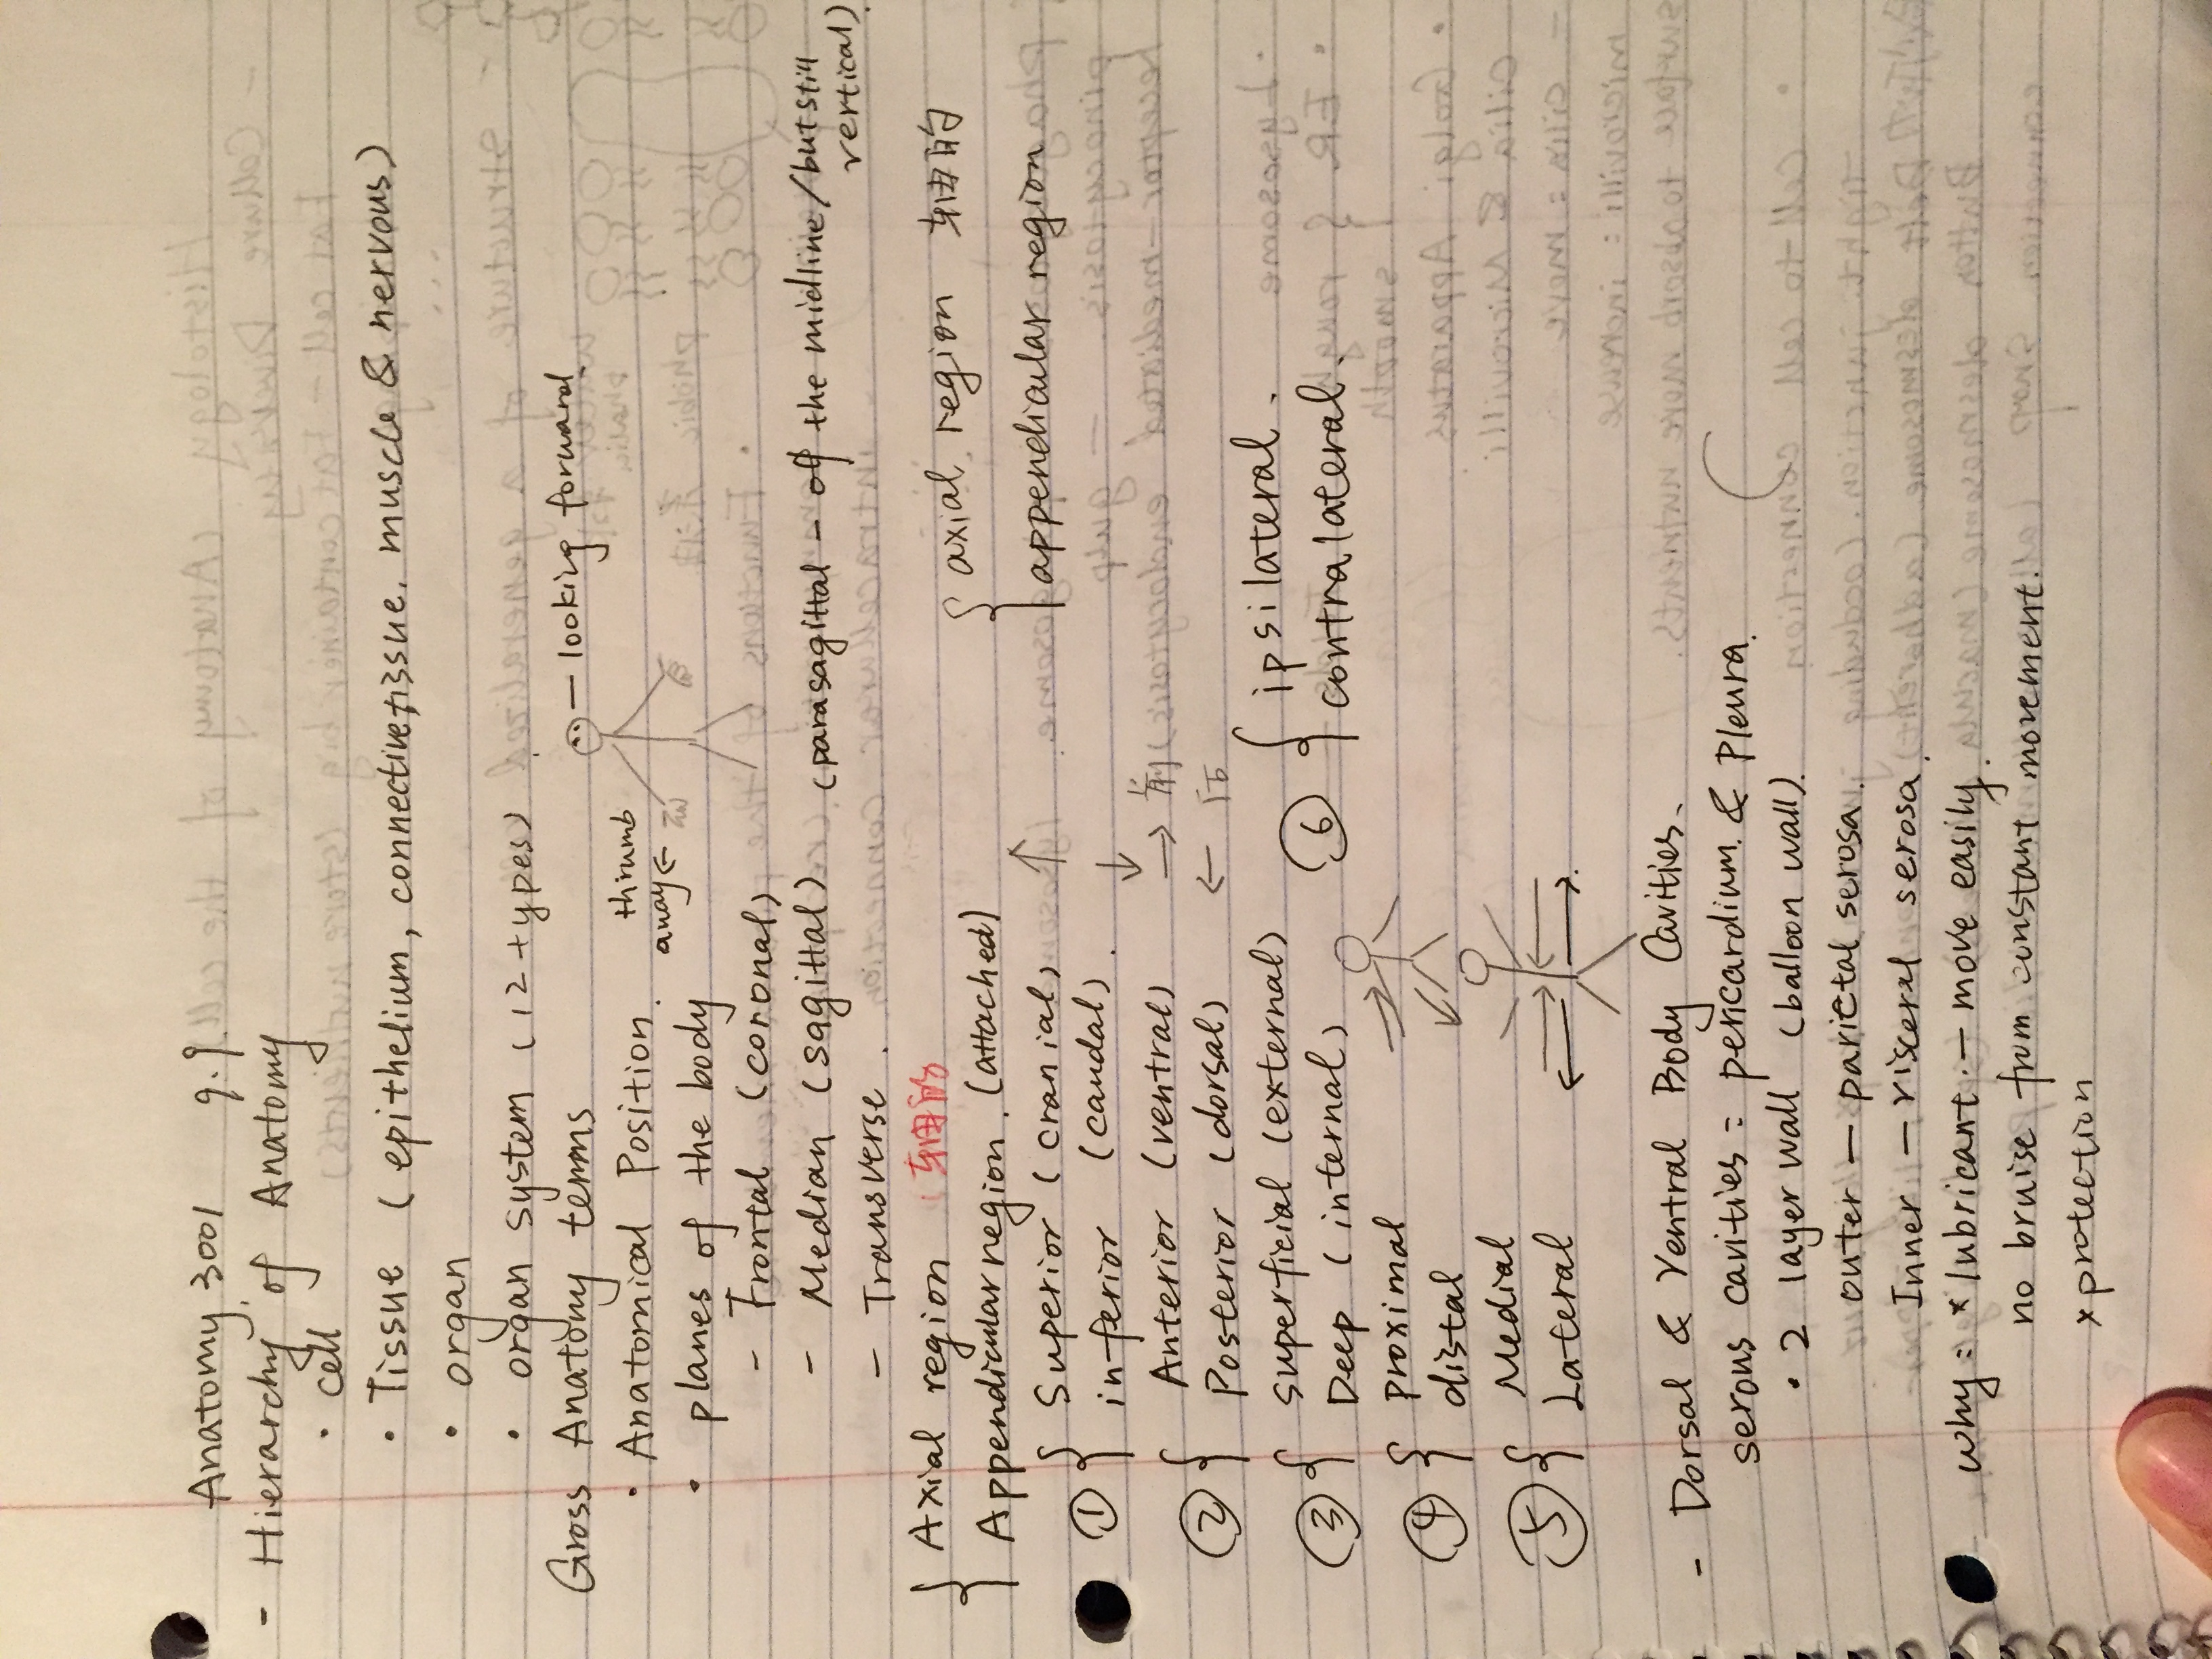 Anatomy 3001 9.9
- Hierarchy of Anatomy
• cell
• Tissue (epithelium, connective tissue. muscle & nervous)
• organ
• organ system (12 types)
Gross Anatomy terms
• Anatomical Position.
thumb
away ←
— looking forward
• planes of the body
- Frontal (coronal)
- Median (sagittal) (parasagittal - off the midline/but still
vertical)
- Transverse.
{ Axial region 轴的
Appendicular region. (attached)
{ axial region 轴的
appendicular region
① { Superior (cranial) ↑
inferior (caudal). ↓
② { Anterior (ventral) → 前
Posterior (dorsal) ← 后
③ { superficial (external)
Deep (internal)
⑥ { ipsilateral.
contralateral.
④ { proximal
distal
⑤ { Medial
Lateral
- Dorsal & Ventral Body Cavities.
serous cavities = pericardium. & Pleura.
• 2 layer wall (balloon wall).
outer — parietal serosa.
Inner — visceral serosa.
why = * lubricant. — move easily.
no bruise from constant movement.
x protection